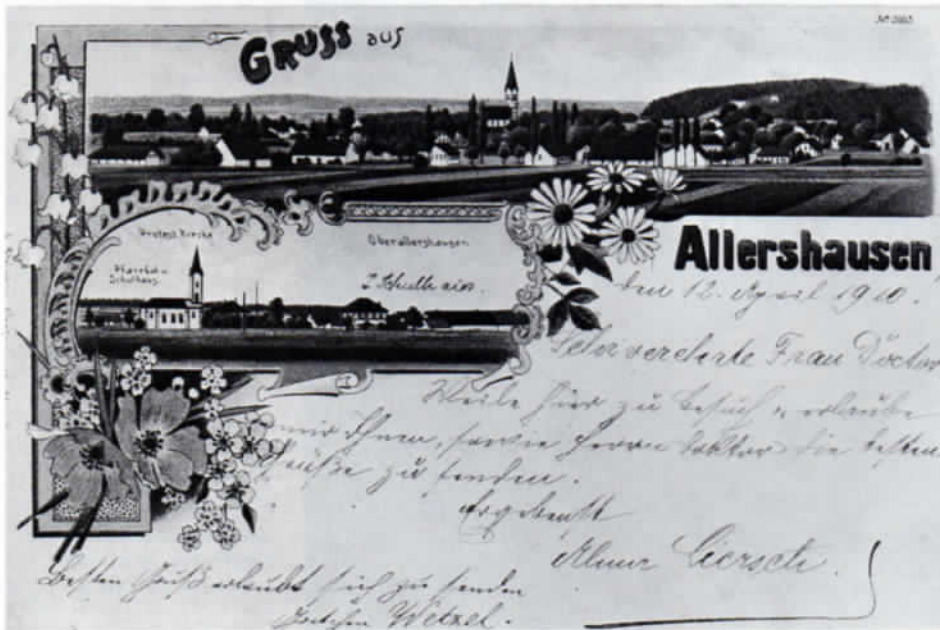 GRUSS aus
Allershausen
Protest. Kirche
Pfarrhof u.
Schulhaus.
Oberallershausen
den 12. April 1910.
Sehr verehrte Frau Doctor
Weile hier zu Besuch u. erlaube
mir Ihnen, sowie Herrn Doktor die besten
Grüße zu senden.
Ergebenst
Besten Gruß erlaubt sich zu senden
Wetzel.